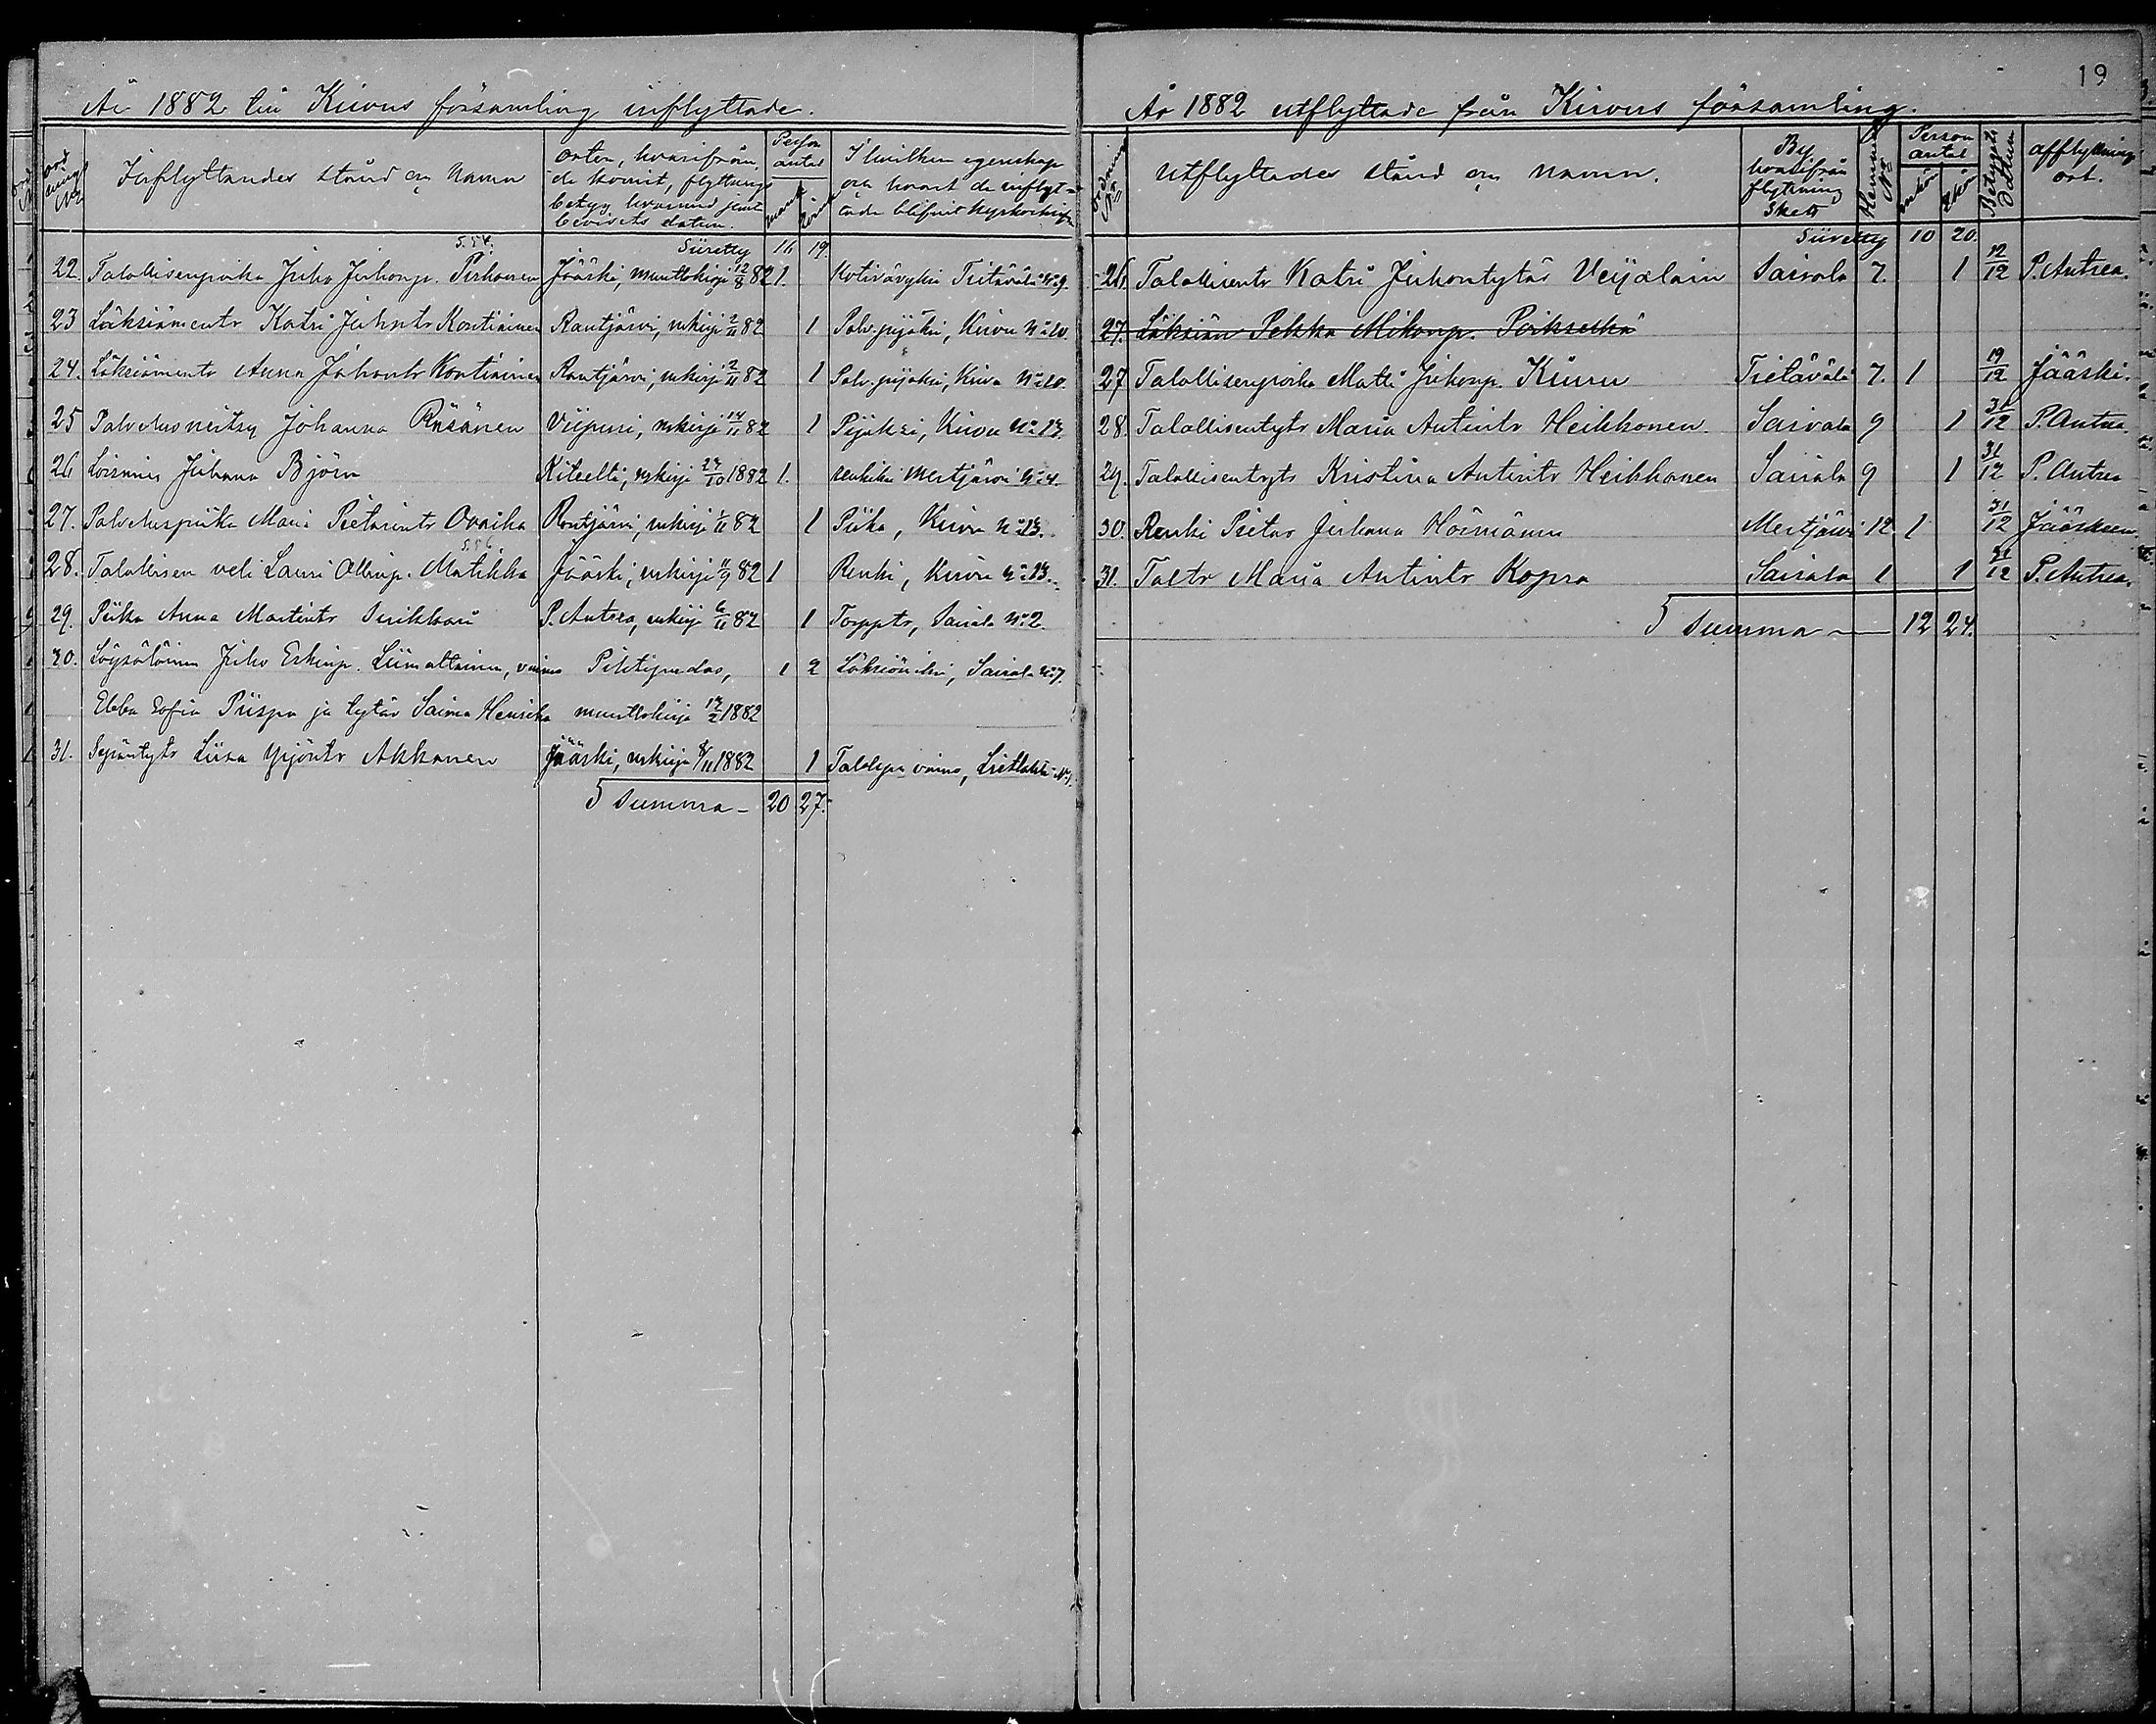 19
År 1882 till Kirvus församling inflyttade.
Inflyttandes stånd och namn
orten, hvarifrån de kommit, flyttnings betyg hvarund samt bevisets datum.
Person antal
I hvilken egenskap och hvart de inflyttade blifvit kyrkoskrifn
Siiretty 16 19
22. Talollisenpoika Juho Juhonp. Pirhonen S.54. Jääski, muuttokirja 12/8 82 1. Kotivävyksi Tietävälä No 9.
23 Löksiäments Katri Juhnts Kontiainen Rautjärvi, mkirja 2/11 82 1 Palv.pijaksi, Kirvu No 20.
24. Löksiäments Anna Juhonts Kontiainen Rautjärvi, mkirja 2/11 82 1 Palv.piijaksi, Kirvu No 20.
25 Palvelusneitsy Johanna Räsänen Viipuri, mkirja 14/11 82 1 Pijaksi, Kirvu No 13.
26 Loismies Juhana Björn Kiteeltä, mkirja 24/10 1882 1. renkiksi Mertjärvi No 4.
27. Palveluspiika Maria Pietarints Ovaska Rautjärvi, mkirja 1/11 82 1 Piika, Kirvu No 13.
28. Talollisen veli Lauri Ollinp. Matikka S.56. Jääski, mkirja 11/9 82 1 Renki, Kirvu No 13.
29. Piika Anna Martints Sirikkani P. Antrea, mkirja 6/11 82 1 Torppts, Sairala No 2.
30. Löysöläinen Juho Erkinp. Liimattainen, vaimo Pihtipudas, 1 2 Löksiöiksi, Sairala No 7.
Ebba Sofia Piispa ja tytär Saima Henrika muuttokirja 14/2 1882
31. Sepäntytr Liisa Yrjönts Akkanen Jääski, mkirja 8/11 1882 1 Talolisen vaimo, Lietlahti No 1.
Summa 20 27.
År 1882 utflyttade från Kirvus församling.
Utflyttades stånd och namn.
By hvarifrån flyttning skett
Hemmans No
Person antal
Betygets datum
afflyttnings ort.
Siiretty 10 20.
26. Talollisents Katri Juhontytär Veijalain Sairala 7. 1 12/12 P. Antrea.
27. Löksiän Pekka Mikonp. Poikselkä
27 Talollisenpoika Matti Juhonp. Kiuru Tietävälä 7. 1 19/12 Jääski.
28. Talollisentytr Maria Antints Heikkonen. Sairala 9 1 31/12 P. Antrea.
29. Talollisentytr Kristina Antints Heikkonen Sairala 9 1 31/12 P. Antrea
30. Renki Pietar Juhana Hörmänen Mertjärvi 12. 1 31/12 Jääskeen.
31. Taltr Maria Antints Kopra Sairala 1 1 31/12 P. Antrea.
Summa 12 24.